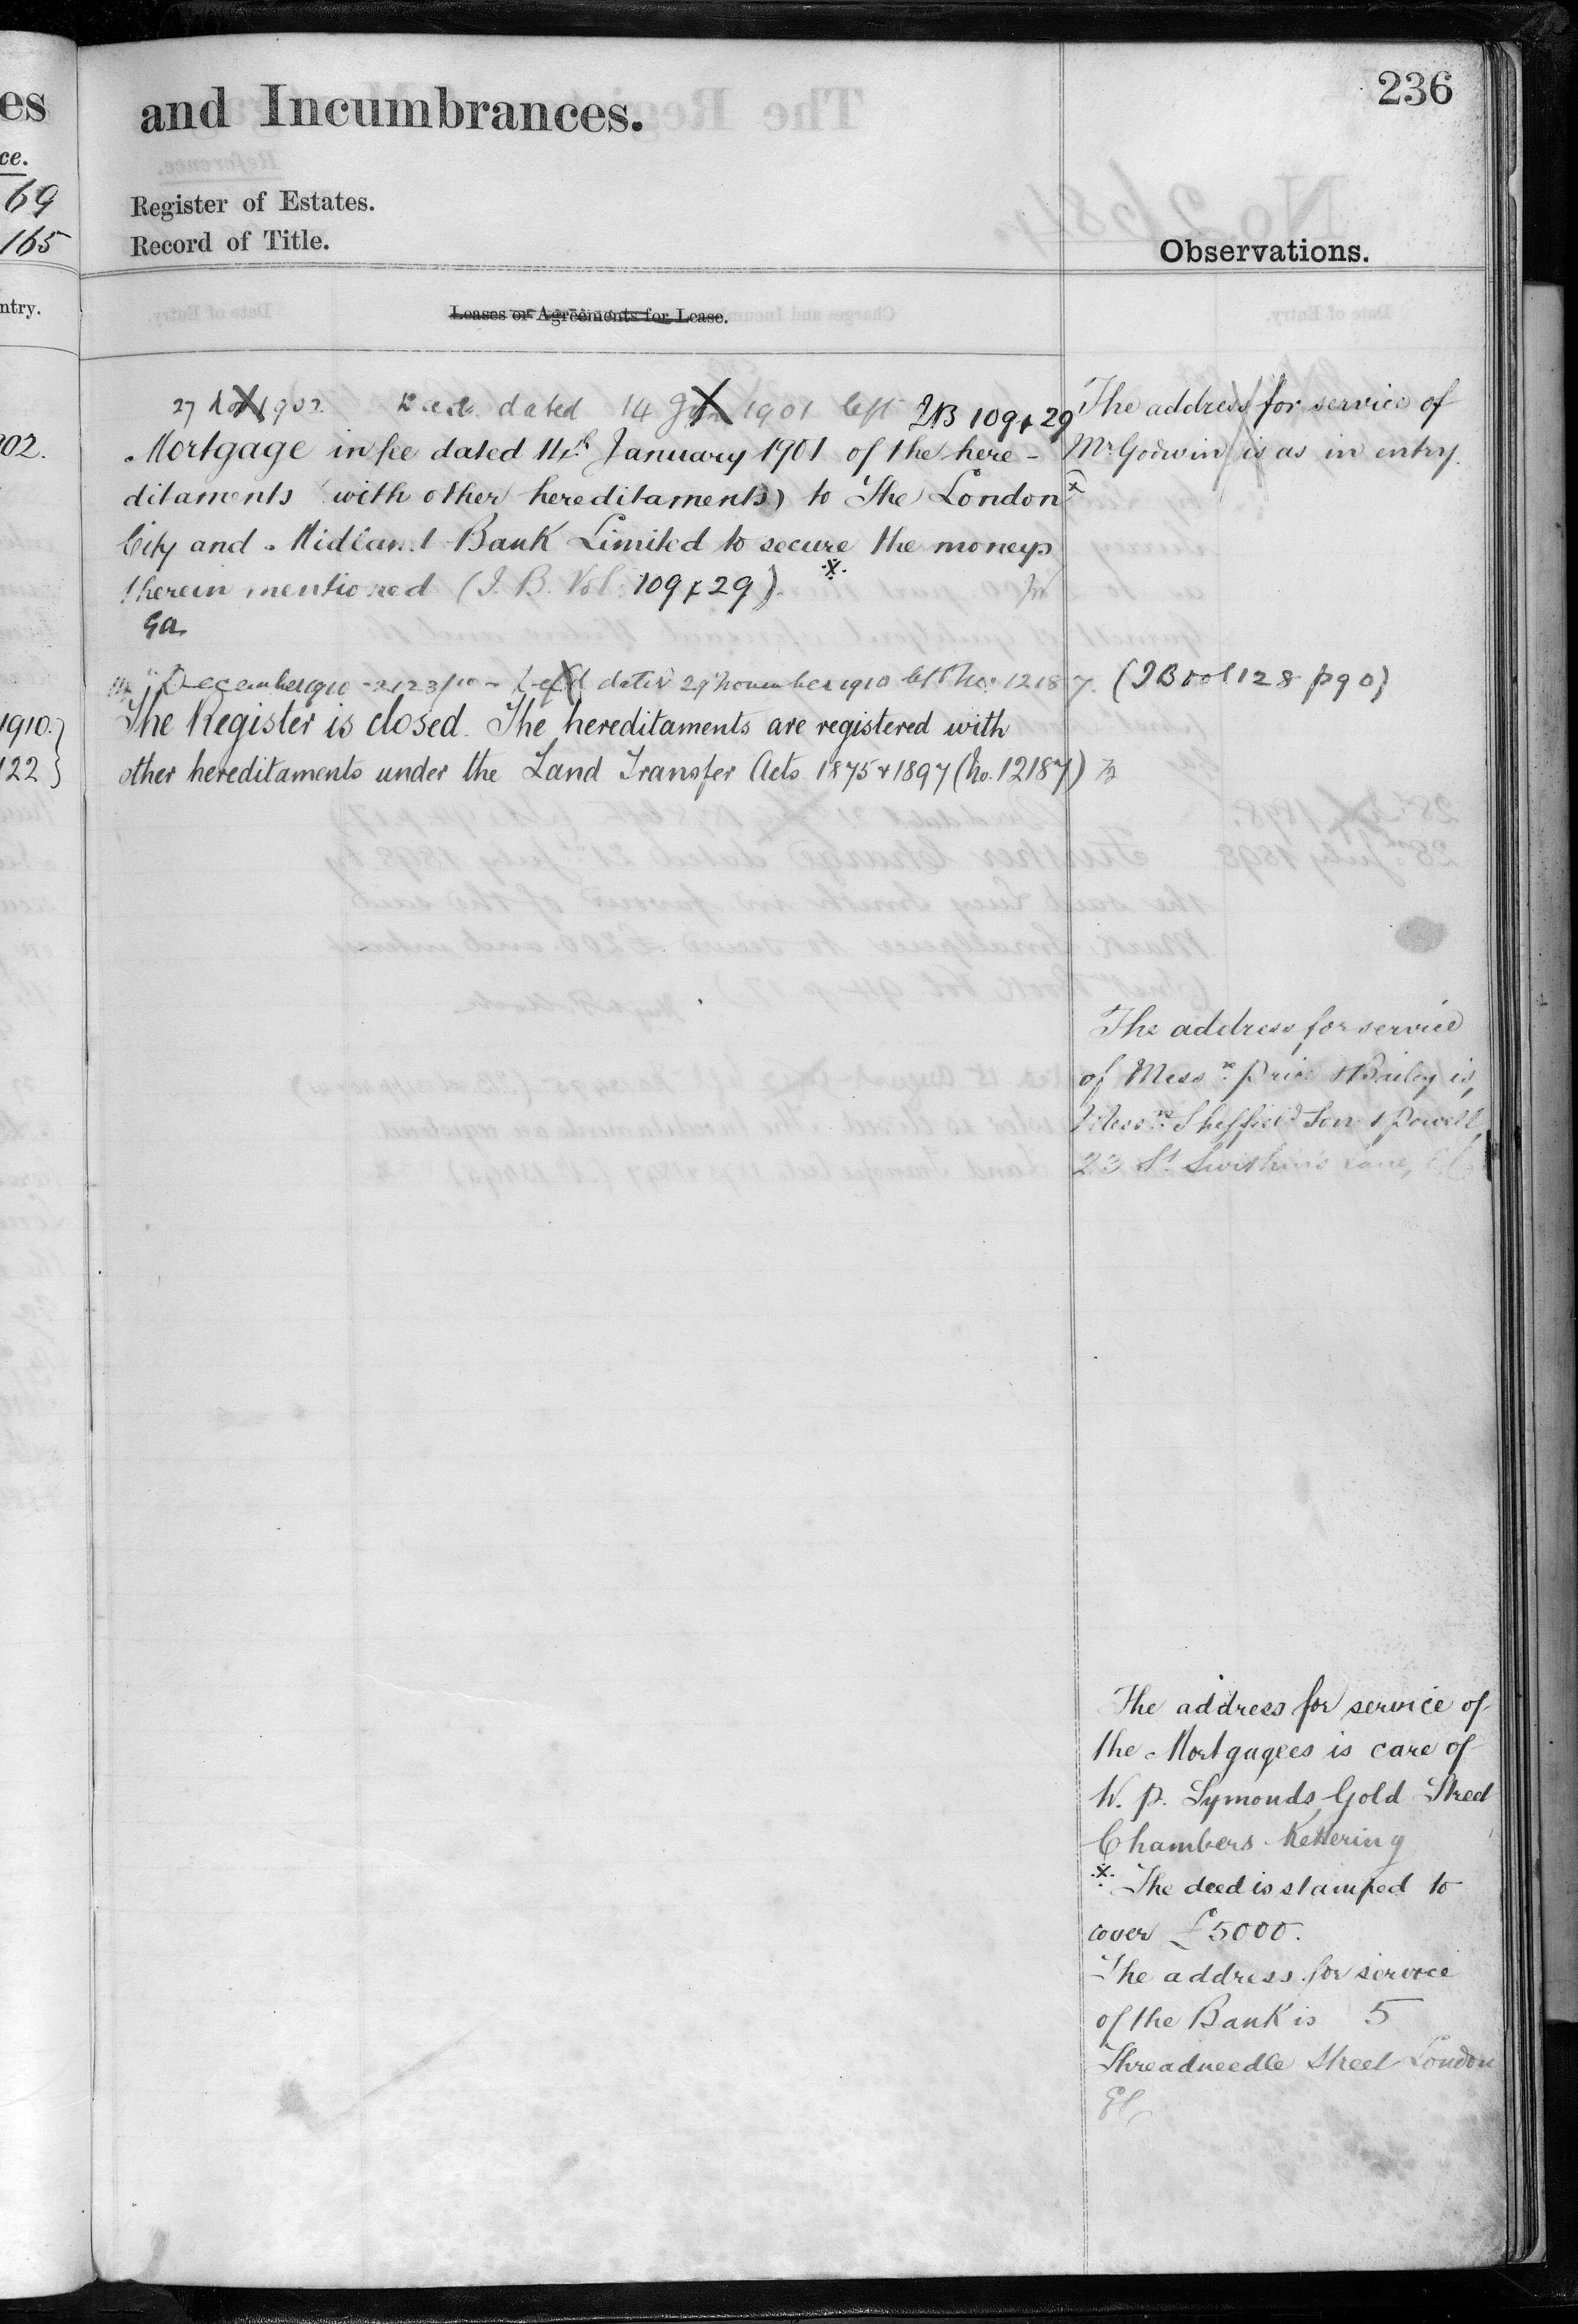 236
es
and Incumbrances.
ce.
69
Register of Estates.
165
Record of Title.
Observations.
ntry.
Leases or Agreements for Lease.
27 Nov 1902. Deed dated 14 Jan 1901 left IB 109 p 29
902.
Mortgage in fee dated 14th January 1901 of the here-
ditaments (with other hereditaments) to The London
City and Midland Bank Limited to secure the moneys
therein mentioned (I. B. Vol. 109 p 29).
Ga
December 1910 dated 29 November 1910 left No. 12187. (IB vol 128 p 90)
1910.}
The Register is closed. The hereditaments are registered with
122}
other hereditaments under the Land Transfer Acts 1875 & 1897 (No. 12187)
The address for service of
Mr Godwin is as in entry.
The address for service
of Messrs. Price & Bailey is,
Messrs. Sheffield Son & Powell
23 St Swithin's Lane, EC
The address for service of
the Mortgagees is care of
W. P. Symonds, Gold Street
Chambers Kettering
The deed is stamped to
cover £5000.
The address for service
of the Bank is 5
Threadneedle Street London
EC